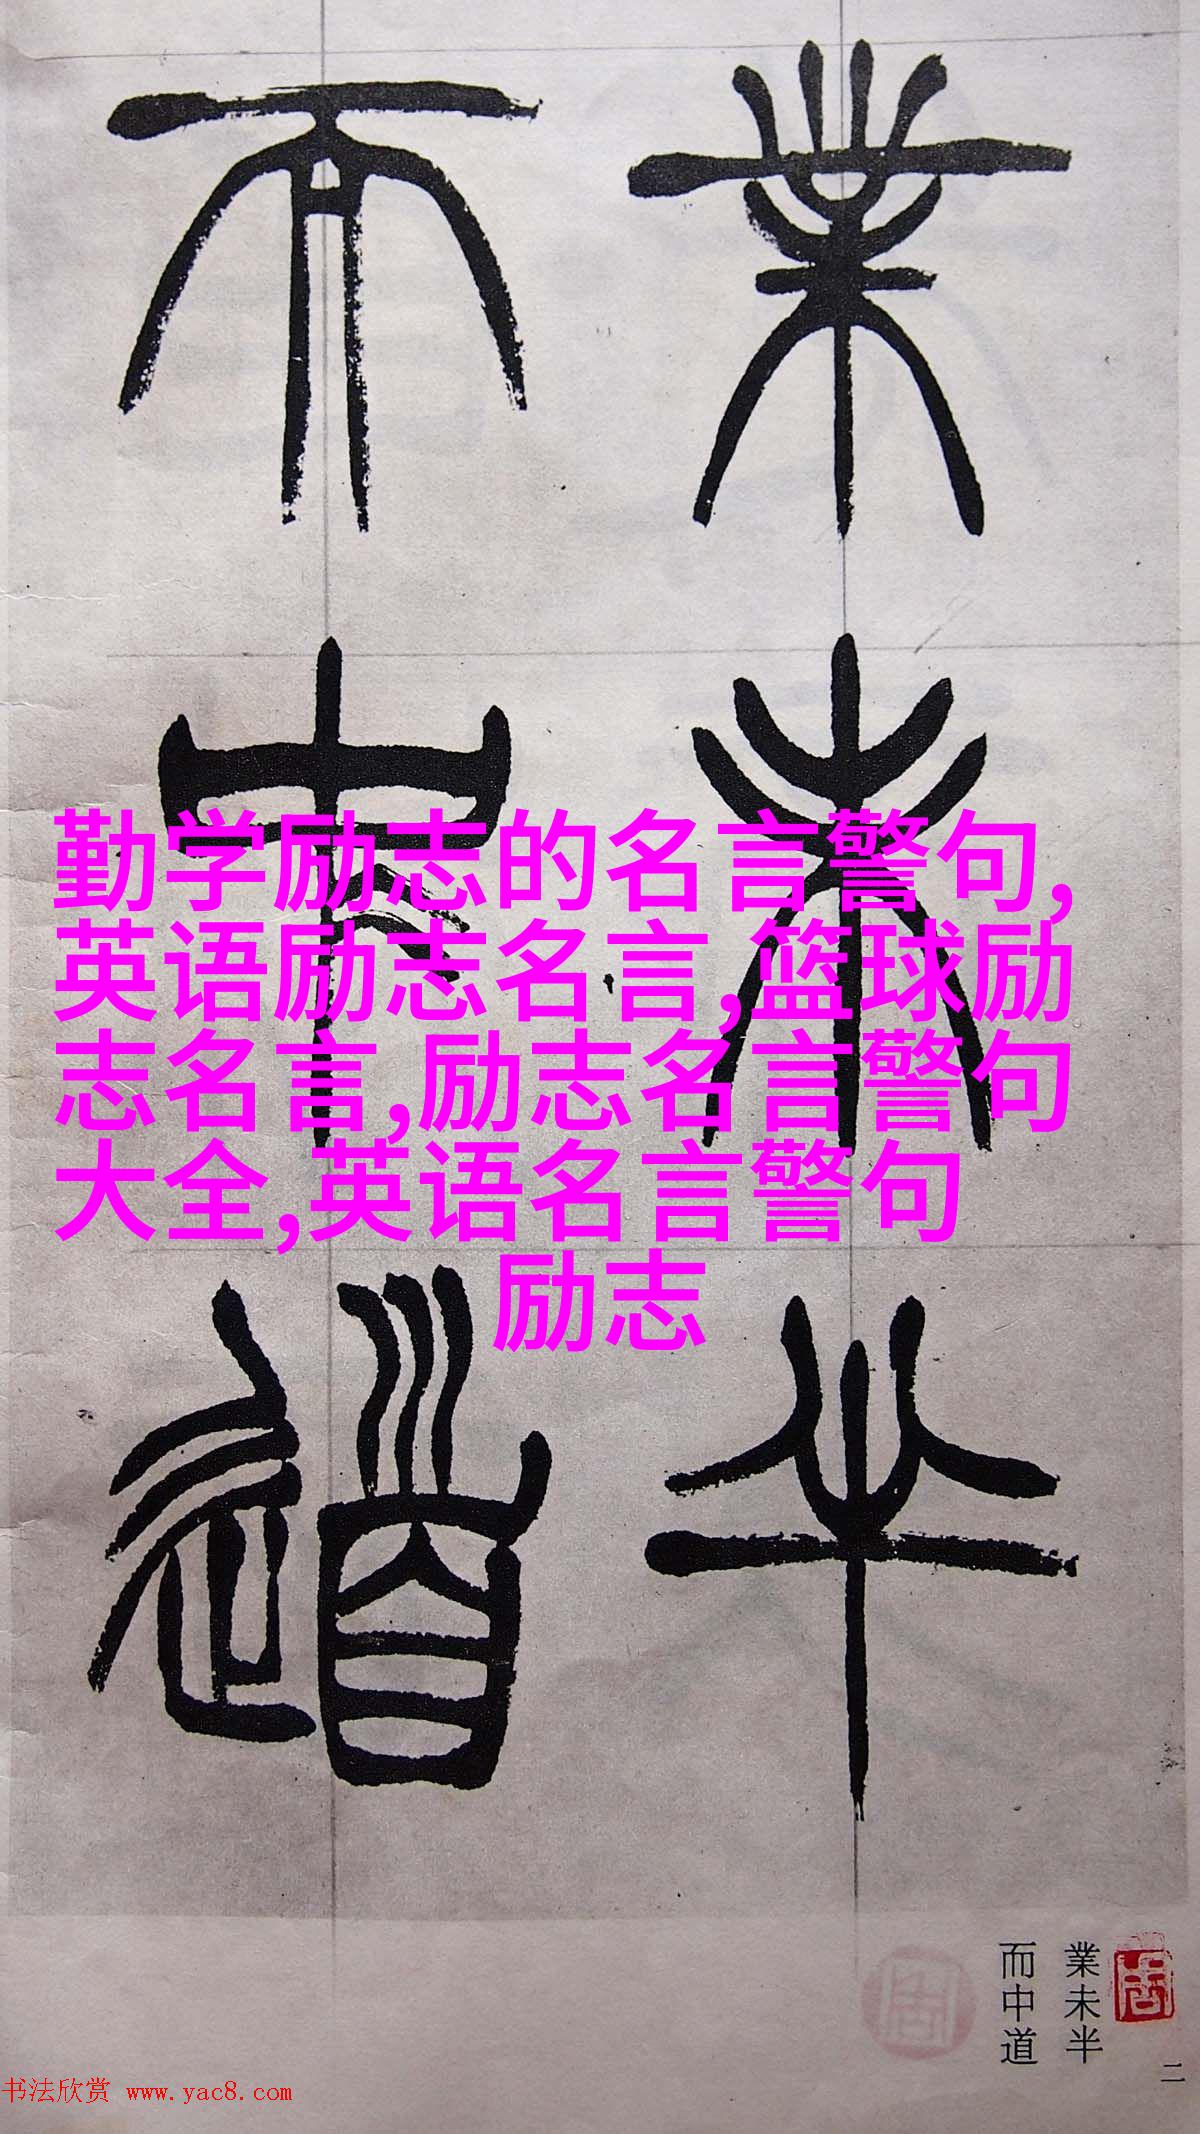 業未半
而中道
勤学励志的名言警句,
英语励志名言,篮球励
志名言,励志名言警句
大全,英语名言警句
励志
業未半
而中道
二
书法欣赏 www.yac8.com